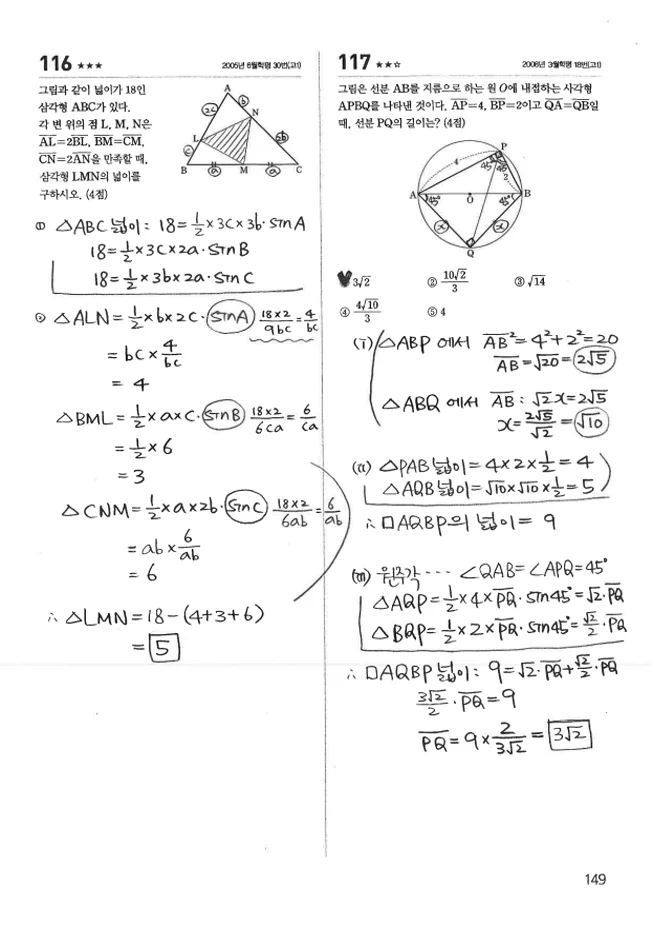 116 ★★★
2005년 6월학평 30번(고1)
그림과 같이 넓이가 18인
삼각형 ABC가 있다.
각 변 위의 점 L, M, N은
AL=2BL, BM=CM,
CN=2AN을 만족할 때,
삼각형 LMN의 넓이를
구하시오. (4점)
A
2c
b
N
L
2b
c
B
a
M
a
C
① △ABC 넓이: 18=½×3c×3b·sinA
18=½×3c×2a·sinB
18=½×3b×2a·sinC
② △ALN=½×b×2c·sinA 18×2/9bc=4/bc
=bc×4/bc
=4
△BML=½×a×c·sinB 18×2/6ca=6/ca
=½×6
=3
△CNM=½×a×2b·sinC 18×2/6ab=6/ab
=ab×6/ab
=6
∴ △LMN=18-(4+3+6)
=5
117 ★★☆
2006년 3월학평 18번(고1)
그림은 선분 AB를 지름으로 하는 원 O에 내접하는 사각형
APBQ를 나타낸 것이다. AP=4, BP=2이고 QA=QB일
때, 선분 PQ의 길이는? (4점)
P
4
45°
45°
2
A
45°
O
45°
B
x
x
Q
3√2
② 10√2/3
③ √14
④ 4√10/3
⑤ 4
(i) △ABP 에서 AB²=4²+2²=20
AB=√20=2√5
△ABQ 에서 AB: √2x=2√5
x=2√5/√2=√10
(ii) △PAB 넓이=4×2×½=4
△AQB 넓이=√10×√10×½=5
∴ □AQBP의 넓이= 9
(iii) 원주각··· ∠QAB=∠APQ=45°
△AQP=½×4×PQ·sin45°=√2·PQ
△BQP=½×2×PQ·sin45°=√2/2·PQ
∴ □AQBP 넓이: 9=√2·PQ+√2/2·PQ
3√2/2·PQ=9
PQ=9×2/3√2=3√2
149